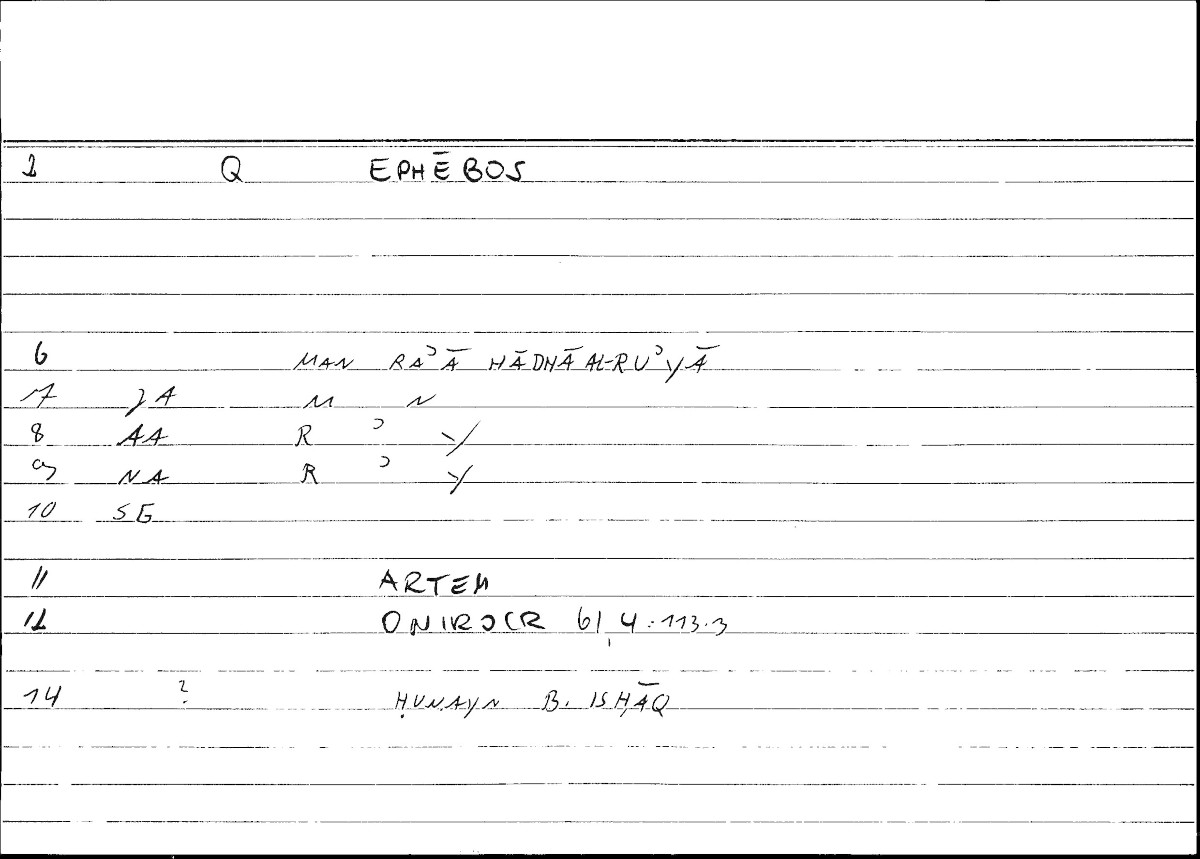 1 Q EPHĒBOS
6 MAN RAʾĀ HĀDHĀ AL-RUʾYĀ
7 JA M N
8 AA R ʾ Y
9 NA R ʾ Y
10 SG
11 ARTEM
12 ONIROCR 61,4:113.3
14 ? ḤUNAYN B. ISḤĀQ